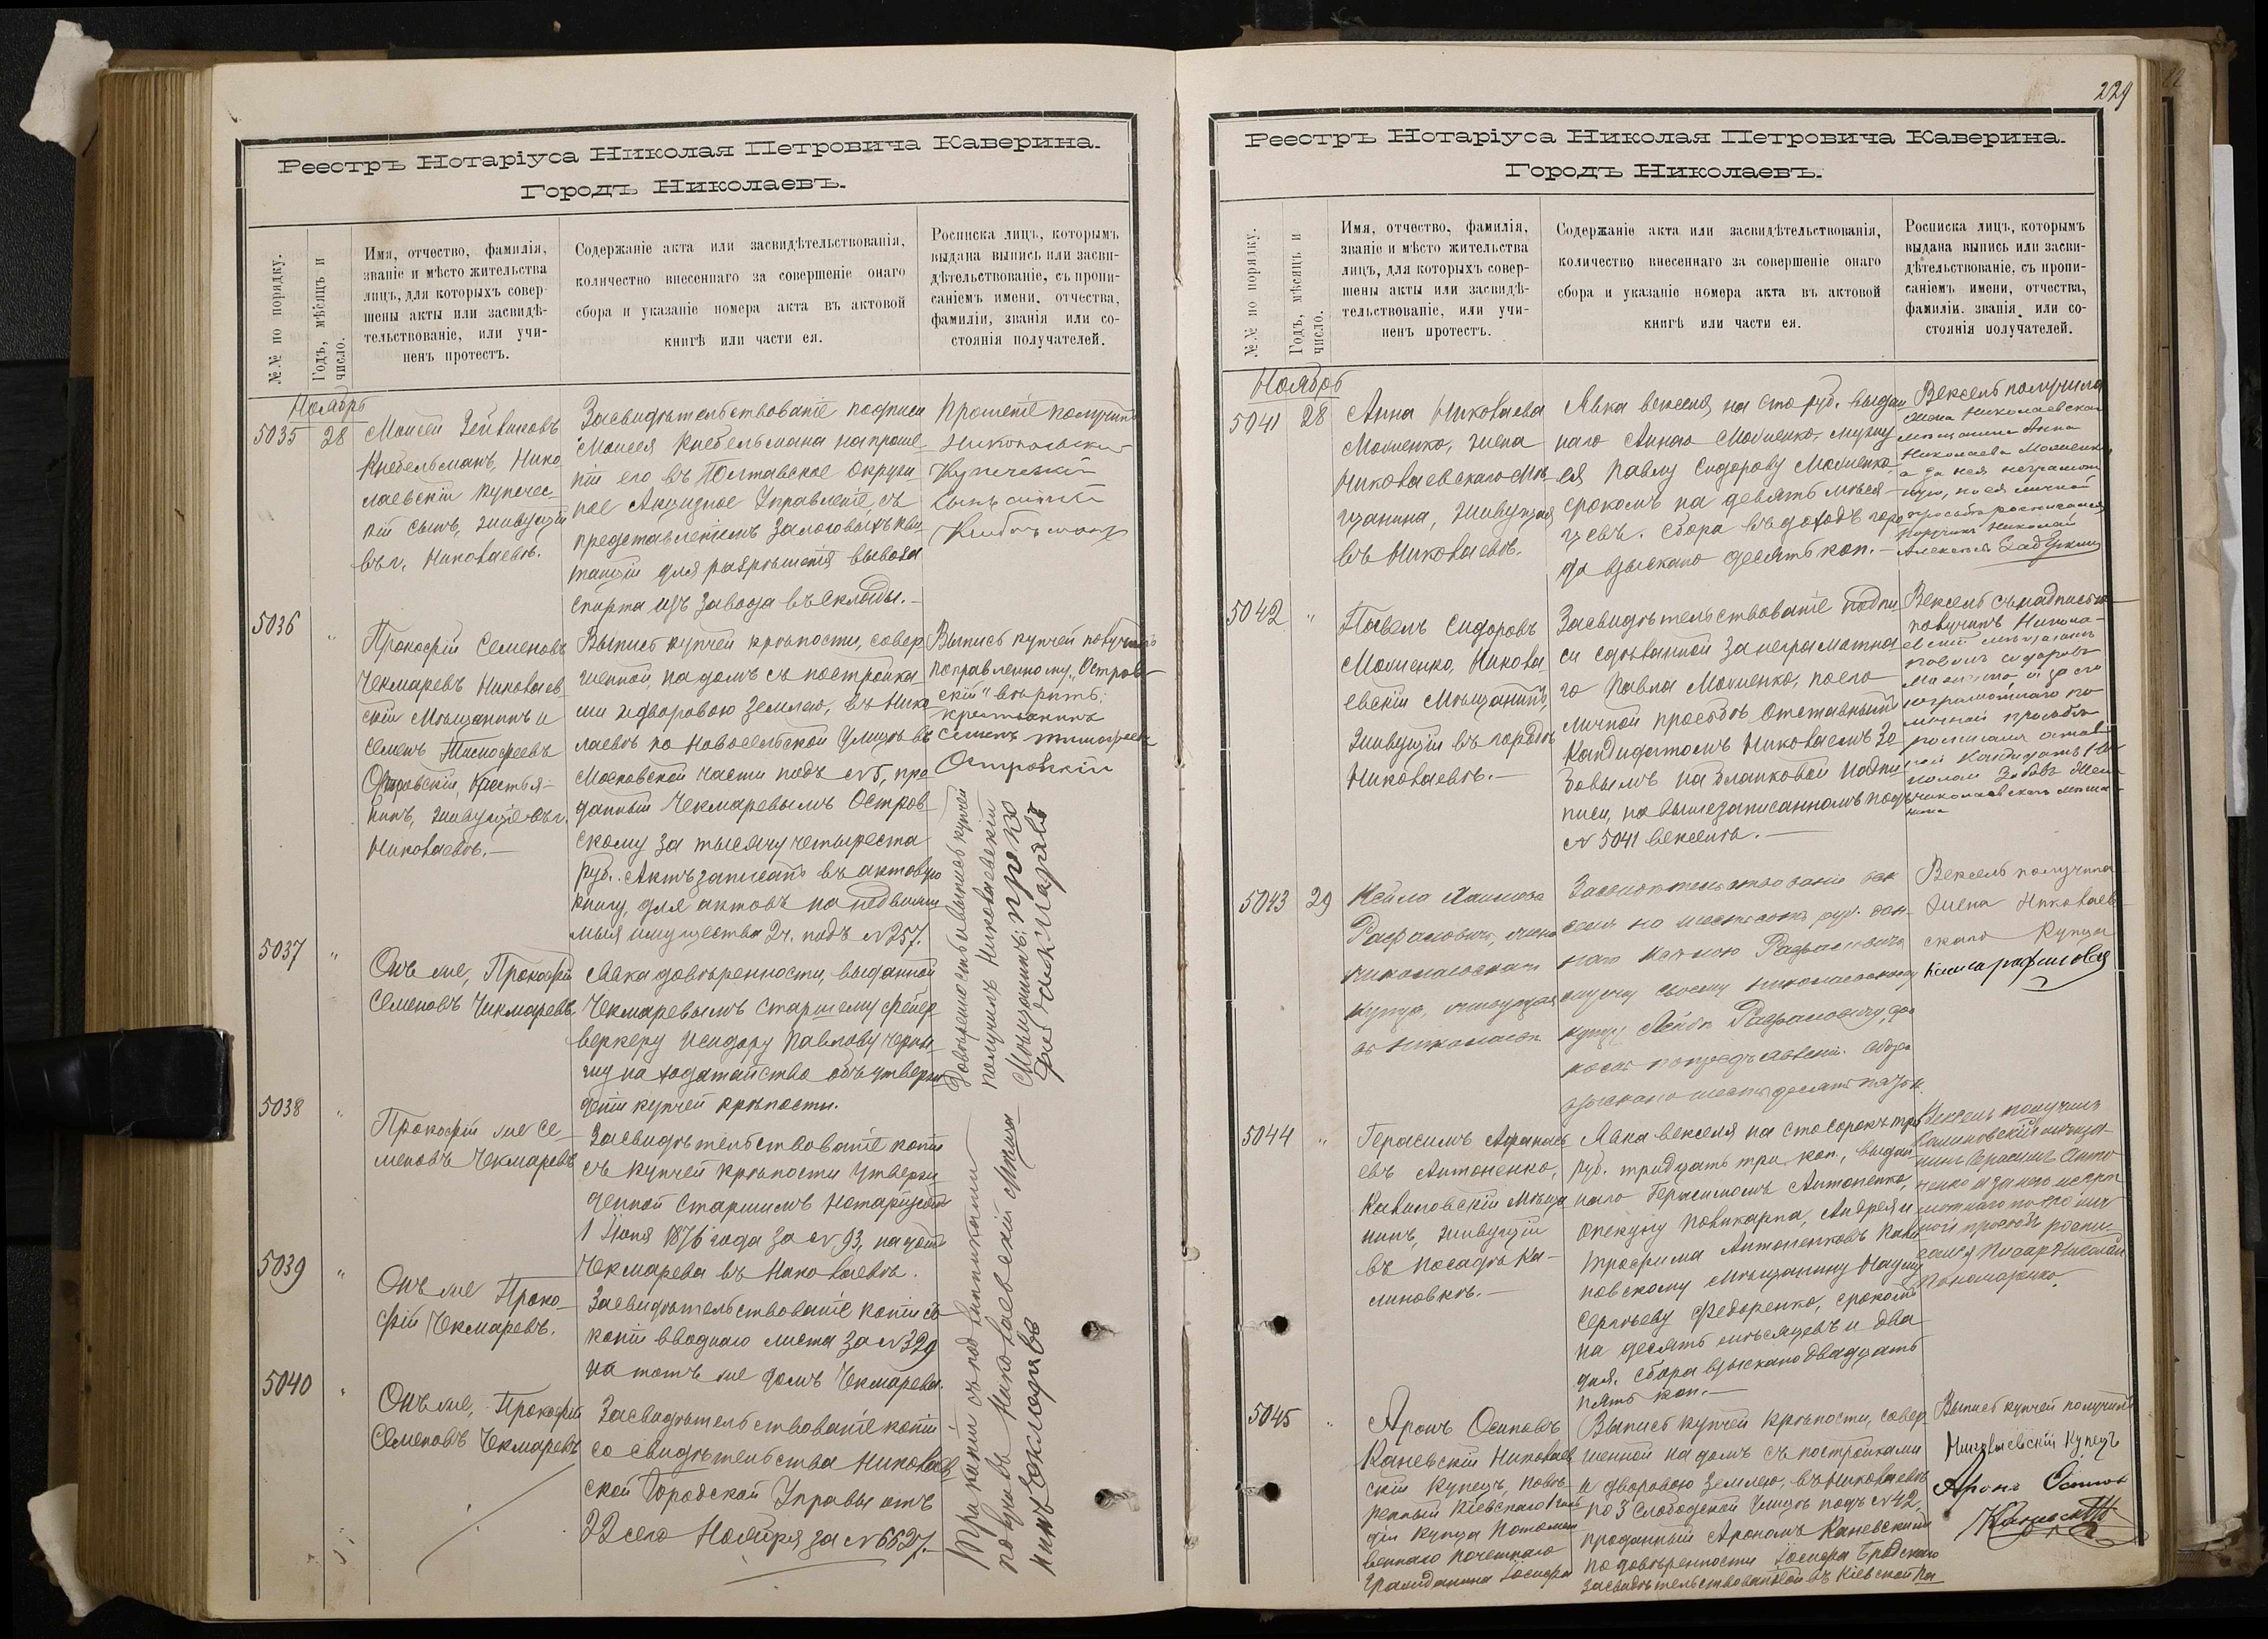 Реестръ Нотаріуса Николая Петровича Каверина.
Городъ Николаевъ.
№№ по порядку.
Годъ, мѣсяцъ и
число.
Имя, отчество, фамилія,
званіе и мѣсто жительства
лицъ, для которыхъ совер-
шены акты или засвидѣ-
тельствованіе, или учи-
ненъ протестъ.
Содержаніе акта или засвидѣтельствованія,
количество внесеннаго за совершеніе онаго
сбора и указаніе номера акта въ актовой
книгѣ или части ея.
Росписка лицъ, которымъ
выдана выпись или засви-
дѣтельствованіе, съ пропи-
саніемъ имени, отчества,
фамиліи, званія или со-
стоянія получателей.
Ноябрь
5035
28
Моисей Зейвиковъ
Кнебельманъ, Нико-
лаевскій купечес-
кій сынъ, живущій
въ г. Николаевѣ.
Засвидѣтельствованіе подписи
Моисея Кнебельмана на проше-
ніи его въ Полтавское Окруж-
ное Акцизное Управленіе, съ
представленіемъ залоговыхъ кви-
танцій для разрѣшенія вывоза
спирта изъ завода въ склады.-
Прошеніе получилъ
Купеческій
Сынъ
5036
"
Прокофій Семеновъ
Чекмаревъ Николаев-
скій Мѣщанинъ и
Семенъ Тимофеевъ
Островскій, Крестья-
нинъ, живущіе въ г.
Николаевѣ.-
Выпись купчей крѣпости, совер-
шенной, на домъ съ постройка-
ми и дворовою землею, въ Нико-
лаевѣ по Новосельской Улицѣ въ
Московской части подъ №5, про-
данный Чекмаревымъ Остров-
скому за тысячу четыреста
руб. Актъ записанъ въ актовую
книгу, для актовъ на недвижи-
мыя имущества 2ч. подъ №257.
Выпись купчей получилъ
поправленному "Остров-
скій" вѣрить:
крестьянинъ
Семенъ Тимофеевъ
Островскій
5037
"
Онъ же, Прокофій
Семеновъ Чекмаревъ.
Явка довѣренности, выданной
Чекмаревымъ старшему фейер-
веркеру Исидору Павлову Черны-
шу на ходатайство объ утверж-
деніи купчей крѣпости.
Довѣренность и выпись купчей
получилъ Николаевскій
Мѣщанинъ: Проко
фій Чекмаревъ
5038
"
Прокофій же Се-
меновъ Чекмаревъ
Засвидѣтельствованіе копіи
съ купчей крѣпости утверж-
денной Старшимъ Нотаріусомъ
1 Іюня 1876 года за №93, на домъ
Чекмарева въ Николаевѣ.
5039
"
Онъ же Проко-
фій Чекмаревъ.
Засвидѣтельствованіе копіи съ
копіи вводнаго листа за №329
на тотъ же домъ Чекмарева.
5040
"
Онъ же, Прокофій
Семеновъ Чекмаревъ
Засвидѣтельствованіе копіи
со свидѣтельства Николаев-
ской Городской Управы отъ
22 сего Ноября за №6627.-
Три копіи съ подлинниками
получилъ Николаевскій Мѣща
нинъ Чекмаревъ
229
Реестръ Нотаріуса Николая Петровича Каверина.
Городъ Николаевъ.
№№ по порядку.
Годъ, мѣсяцъ и
число.
Имя, отчество, фамилія,
званіе и мѣсто жительства
лицъ, для которыхъ совер-
шены акты или засвидѣ-
тельствованіе, или учи-
ненъ протестъ.
Содержаніе акта или засвидѣтельствованія,
количество внесеннаго за совершеніе онаго
сбора и указаніе номера акта въ актовой
книгѣ или части ея.
Росписка лицъ, которымъ
выдана выпись или засви-
дѣтельствованіе, съ пропи-
саніемъ имени, отчества,
фамиліи, званія, или со-
стоянія получателей.
Ноябрь
5041
28
Анна Николаева
Мошенко, жена
Николаевскаго Мѣ-
щанина, живущая
въ Николаевѣ.
Явка векселя на сто руб. выдан-
наго Анною Мошенко, мужу
ея Павлу Сидорову Мошенко,
срокомъ на девять мѣся-
цевъ. Сбора въ доходъ горо-
да взыскано десять коп.-
Вексель получила
жена Николаевскаго
мѣщанина Анна
Николаева Мошенко,
а за нея неграмот-
ную, по ея личной
просьбѣ росписался
Поручикъ Николай
Алексеевъ
5042
"
Павелъ Сидоровъ
Мошенко, Никола-
евскій Мѣщанинъ,
живущій въ городѣ
Николаевѣ.-
Засвидѣтельствованіе подпи-
си сдѣланной за неграмотна-
го Павла Мошенко, по его
личной просьбѣ Отставнымъ
Кандидатомъ Николаемъ Зо-
бовымъ на бланковой надпи-
писи, на вышезаписанномъ подъ
№ 5041 векселѣ.-
Вексель съ надписью
получилъ Никола-
евскій мѣщанинъ
Павелъ Сидоровъ
Мошенко а за его
неграмотнаго по
личной просьбѣ
росписался отстав-
ной Кандидатъ Ни-
колай Зобовъ
5043
29
Кейла Хаимова
Рафаловичъ, жена
Николаевскаго
купца, живущая
въ Николаевѣ
Засвидѣтельствованіе век-
селя на шестьсотъ руб. дан-
наго Кейлою Рафаловичъ
мужу своему Николаевскому
купцу Лейбѣ Рафаловичу, сро-
комъ по предъявленіи. Сбора
взыскано шестьдесятъ коп.
Вексель получила
жена Николаев-
скаго Купца
Кейла Рафаловичъ
5044
"
Герасимъ Афанась-
евъ Антоненко,
Калиновскій Мѣща-
нинъ, живущій
въ посадѣ Ка-
линовкѣ.-
Явка векселя на сто сорокъ три
руб. тридцать три коп., выдан-
наго Герасимомъ Антоненко,
опекуну Поликарпа, Андрея и
Трофима Антоненковъ Кали-
новскому Мѣщанину Науму
Сергѣеву Федоренко, срокомъ
на десять мѣсяцевъ и два
дня. Сбора взыскано двадцать
пять коп.-
Вексель получилъ
Калиновскій мѣща-
нинъ Герасимъ Анто-
ненко а за него негра-
мотнаго по его лич-
ной просьбѣ роспи-
сался Писарь Николай
Пономаренко.
5045
"
Аронъ Осиповъ
Каневскій Николаев-
скій Купецъ, повѣ-
ренный Кіевскаго 1 гиль-
діи купца Потомст-
веннаго почетнаго
гражданина Іосифа
Выпись купчей крѣпости, совер-
шенной на домъ съ постройками
и дворовою землею, въ Николаевѣ
по 3 Слободской Улицѣ подъ №42,
проданный Арономъ Каневскимъ
по довѣренности Іосифа Бродскаго
засвидѣтельствованной въ Кіевской Па-
Выпись купчей получилъ
Николаевскій Купецъ
Аронъ Осиповъ
Каневскій